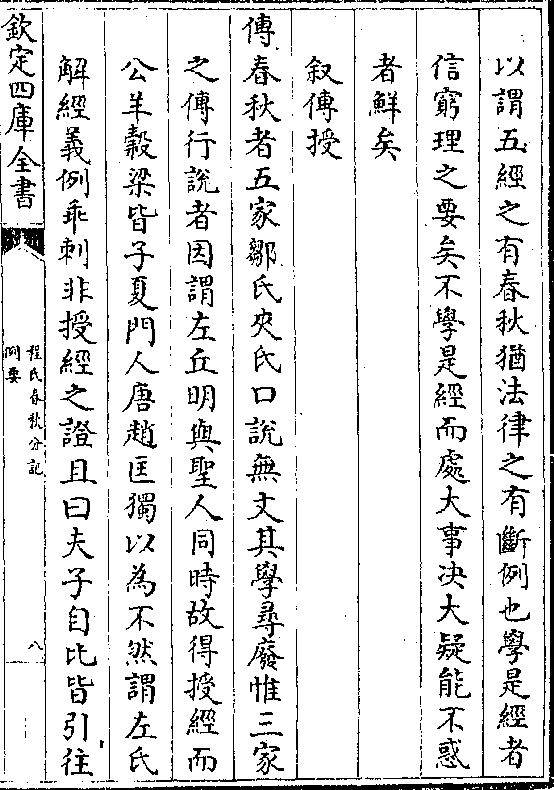 以謂五經之有春秋猶法律之有斷例也學是經者
信窮理之要矣不學是經而處大事決大疑能不惑
者鮮矣
叙傳授
傳春秋者五家鄒氏夾氏口說無文其學尋廢惟三家
之傳行說者因謂左丘明與聖人同時故得授經而
公羊穀梁皆子夏門人唐趙匡獨以為不然謂左氏
解經義例乖刺非授經之證且曰夫子自比皆引往
欽定四庫全書
程氏春秋分記
例要
八